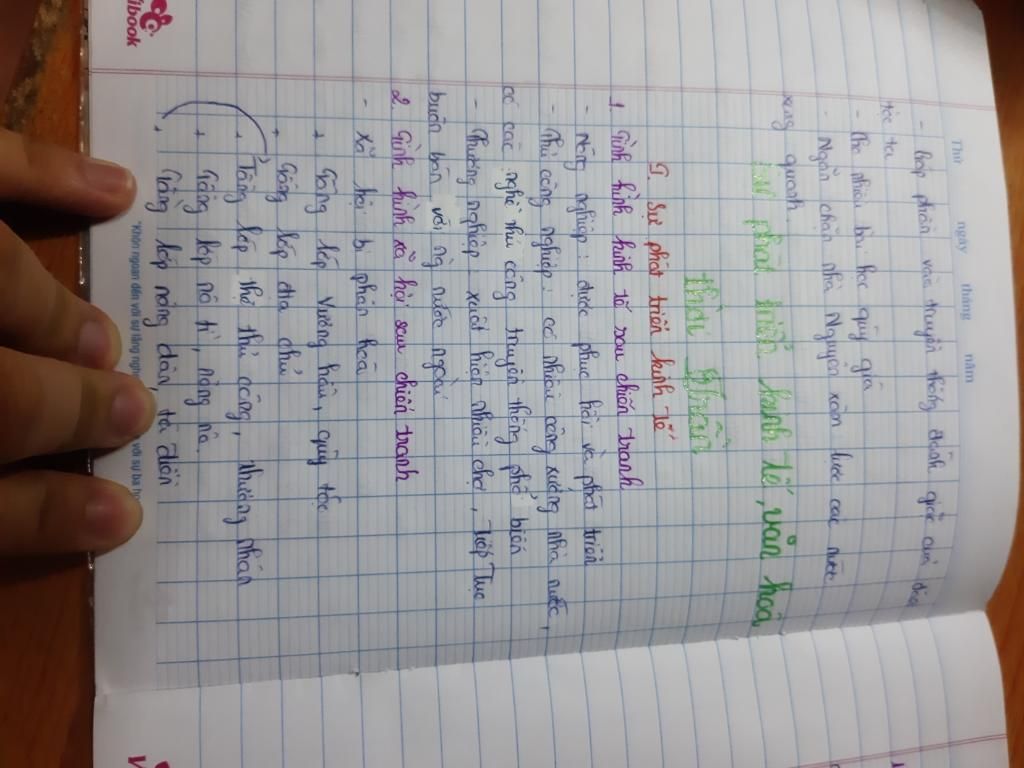 Thứ ngày tháng năm
- Góp phần vào truyền thống đánh giặc của dân
tộc ta
- Cho nhiều bài học quý giá
- Ngăn chặn nhà Nguyên xâm lược các nước
xung quanh
phát triển kinh tế, văn hoá
thời Trần
I. Sự phát triển kinh tế
1. Tình hình kinh tế sau chiến tranh
- Nông nghiệp: được phục hồi và phát triển
- Thủ công nghiệp: có nhiều công xưởng nhà nước,
có các nghề thủ công truyền thống phổ biến
- Thương nghiệp: xuất hiện nhiều chợ, tiếp tục
buôn bán với ng nước ngoài
2. Tình hình xã hội sau chiến tranh
- Xã hội bị phân hoá
+ Tầng lớp Vương hầu, quý tộc
+ Tầng lớp địa chủ
+ Tầng lớp thợ thủ công, thương nhân
+ Tầng lớp nô tì, nông nô.
+ Tầng lớp nông dân, tá điền
"Khôn ngoan đến với sự lắng ngh
ibook